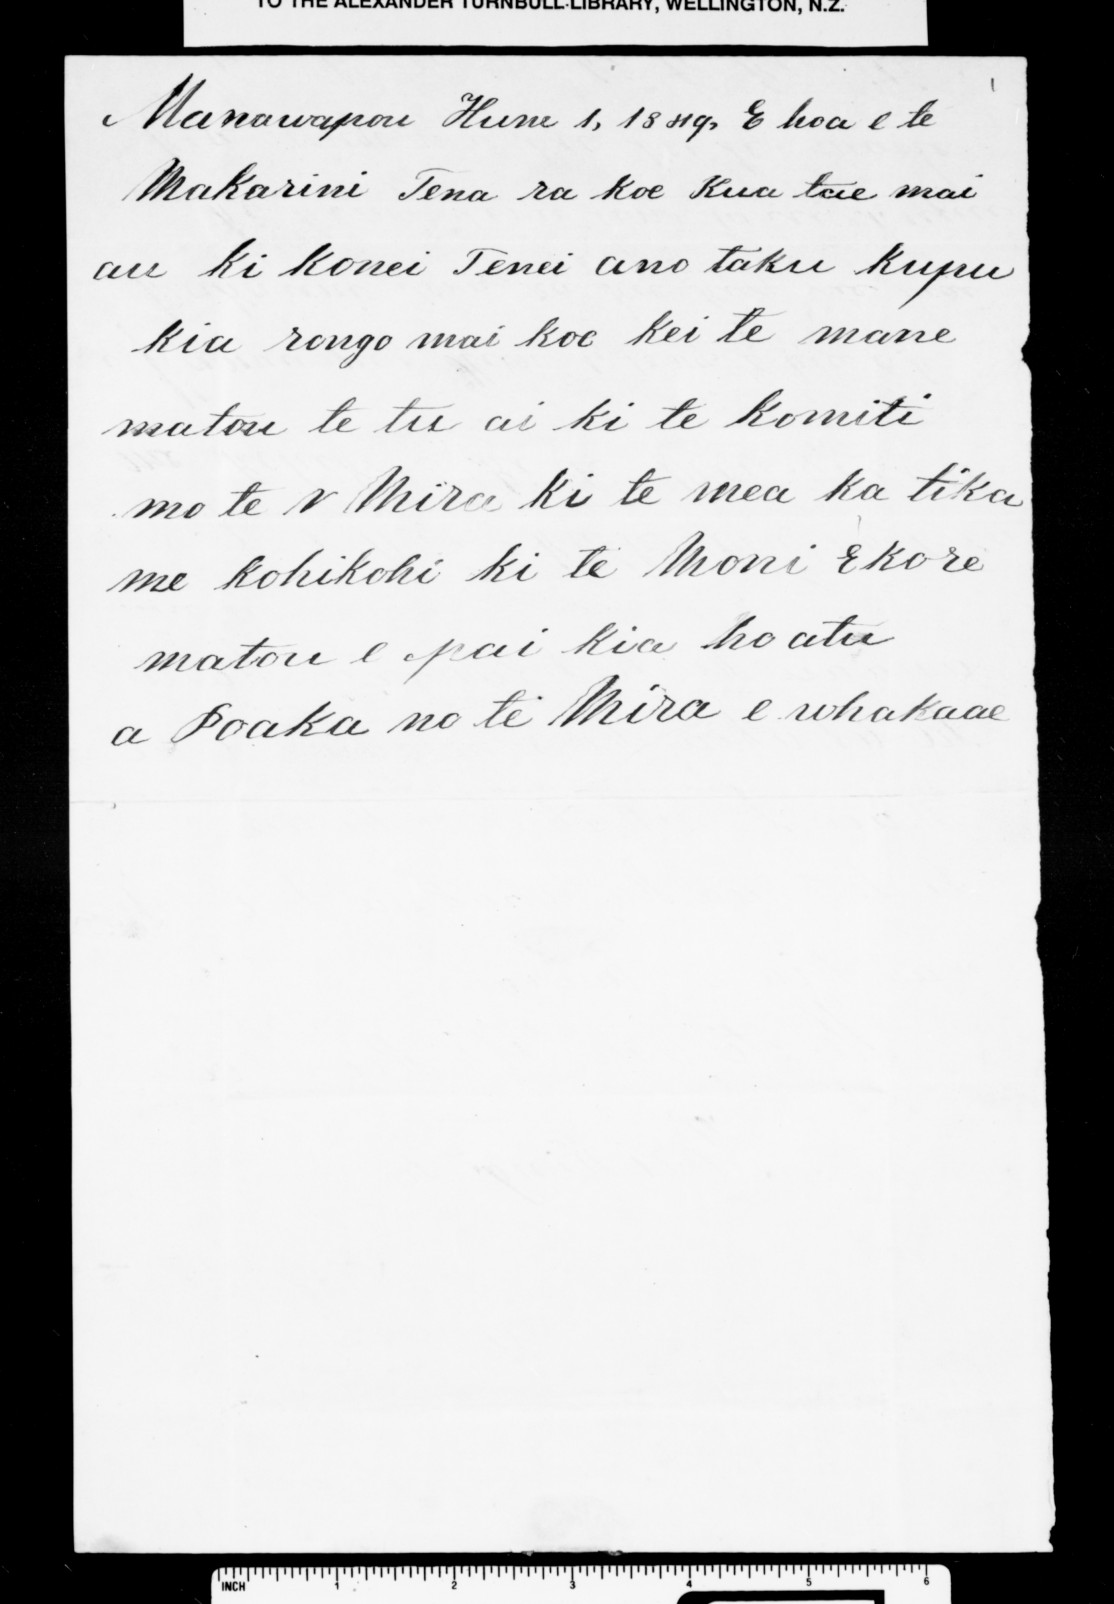 TO THE ALEXANDER TURNBULL LIBRARY, WELLINGTON, N.Z.
1
Manawapou Hune 1, 1849, E hoa e te
Makarini Tena ra koe Kua tae mai
au ki konei Tenei ano taku kupu
kia rongo mai koe kei te mane
matou te tu ai ki te komiti
mo te Mira ki te mea ka tika
me kohikohi ki te Moni E kore
matou e pai kia ho atu
a Poaka no te Mira e whakaae
INCH 1 2 3 4 5 6